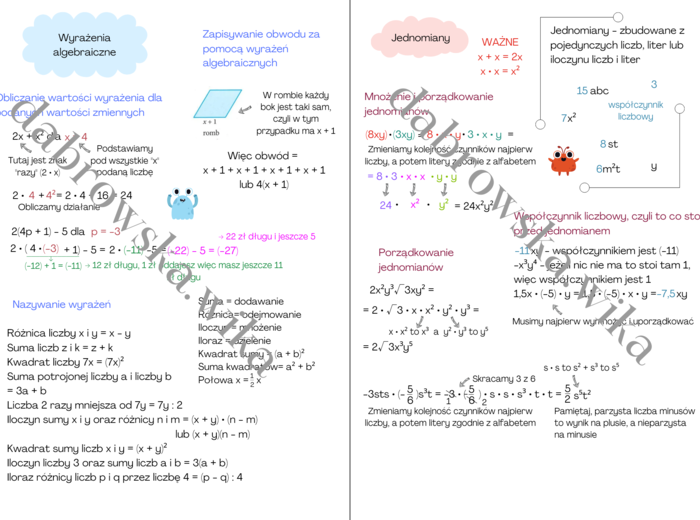 Wyrażenia
algebraiczne
Zapisywanie obwodu za
pomocą wyrażeń
algebraicznych
x + 1
romb
W rombie każdy
bok jest taki sam,
czyli w tym
przypadku ma x + 1
Więc obwód =
x + 1 + x + 1 + x + 1 + x + 1
lub 4(x + 1)
Obliczanie wartości wyrażenia dla
podanych wartości zmiennych
2x + x² dla x = 4
Tutaj jest znak
"razy" (2 • x)
Podstawiamy
pod wszystkie "x"
podaną liczbę
2 • 4 + 4² = 2 • 4 + 16 = 24
Obliczamy działanie
2(4p + 1) – 5 dla p = –3
→ 22 zł długu i jeszcze 5
2 • ( 4 •(–3) + 1) – 5 = 2 • (–11) –5 = (–22) – 5 = (–27)
(–12) + 1 = (–11) → 12 zł długu, 1 zł oddajesz więc masz jeszcze 11
zł długu
Nazywanie wyrażeń
Suma = dodawanie
Różnica= odejmowanie
Iloczyn = mnożenie
Iloraz = dzielenie
Kwadrat sumy = (a + b)²
Suma kwadratów= a² + b²
Połowa x = 1/2 x
Różnica liczby x i y = x – y
Suma liczb z i k = z + k
Kwadrat liczby 7x = (7x)²
Suma potrojonej liczby a i liczby b
= 3a + b
Liczba 2 razy mniejsza od 7y = 7y : 2
Iloczyn sumy x i y oraz różnicy n i m = (x + y) • (n – m)
lub (x + y)(n – m)
Kwadrat sumy liczb x i y = (x + y)²
Iloczyn liczby 3 oraz sumy liczby a i b = 3(a + b)
Iloraz różnicy liczb p i q przez liczbę 4 = (p – q) : 4
dabrowska.wika
Jednomiany
WAŻNE
x + x = 2x
x • x = x²
Jednomiany – zbudowane z
pojedynczych liczb, liter lub
iloczynu liczb i liter
15 abc
3
współczynnik
liczbowy
7x²
8 st
6m²t
y
Mnożenie i porządkowanie
jednomianów
(8xy)•(3xy) = 8 • x • y • 3 • x • y =
Zmieniamy kolejność czynników najpierw
liczby, a potem litery zgodnie z alfabetem
= 8 • 3 • x • x • y • y
24 • x² • y² = 24x²y²
Współczynnik liczbowy, czyli to co stoi
przed jednomianem
–11xy – współczynnikiem jest (–11)
–x³y⁴ – jeżeli nic nie ma to stoi tam 1,
więc współczynnikiem jest 1
1,5x • (–5) • y = 1,5 • (–5) • x • y =–7,5xy
Musimy najpierw wymnożyć i uporządkować
Porządkowanie
jednomianów
2x²y³√3xy² =
= 2 • √3 • x • x² • y² • y³ =
x • x² to x³ a y² • y³ to y⁵
= 2√3x³y⁵
s • s to s² + s³ to s⁵
Skracamy 3 z 6
–3sts • (–5/6)s³t = –3/1 • (–5/6 2) • s • s • s³ • t • t = 5/2 s⁵t²
Zmieniamy kolejność czynników najpierw
liczby, a potem litery zgodnie z alfabetem
Pamiętaj, parzysta liczba minusów
to wynik na plusie, a nieparzysta
na minusie
dabrowska.wika